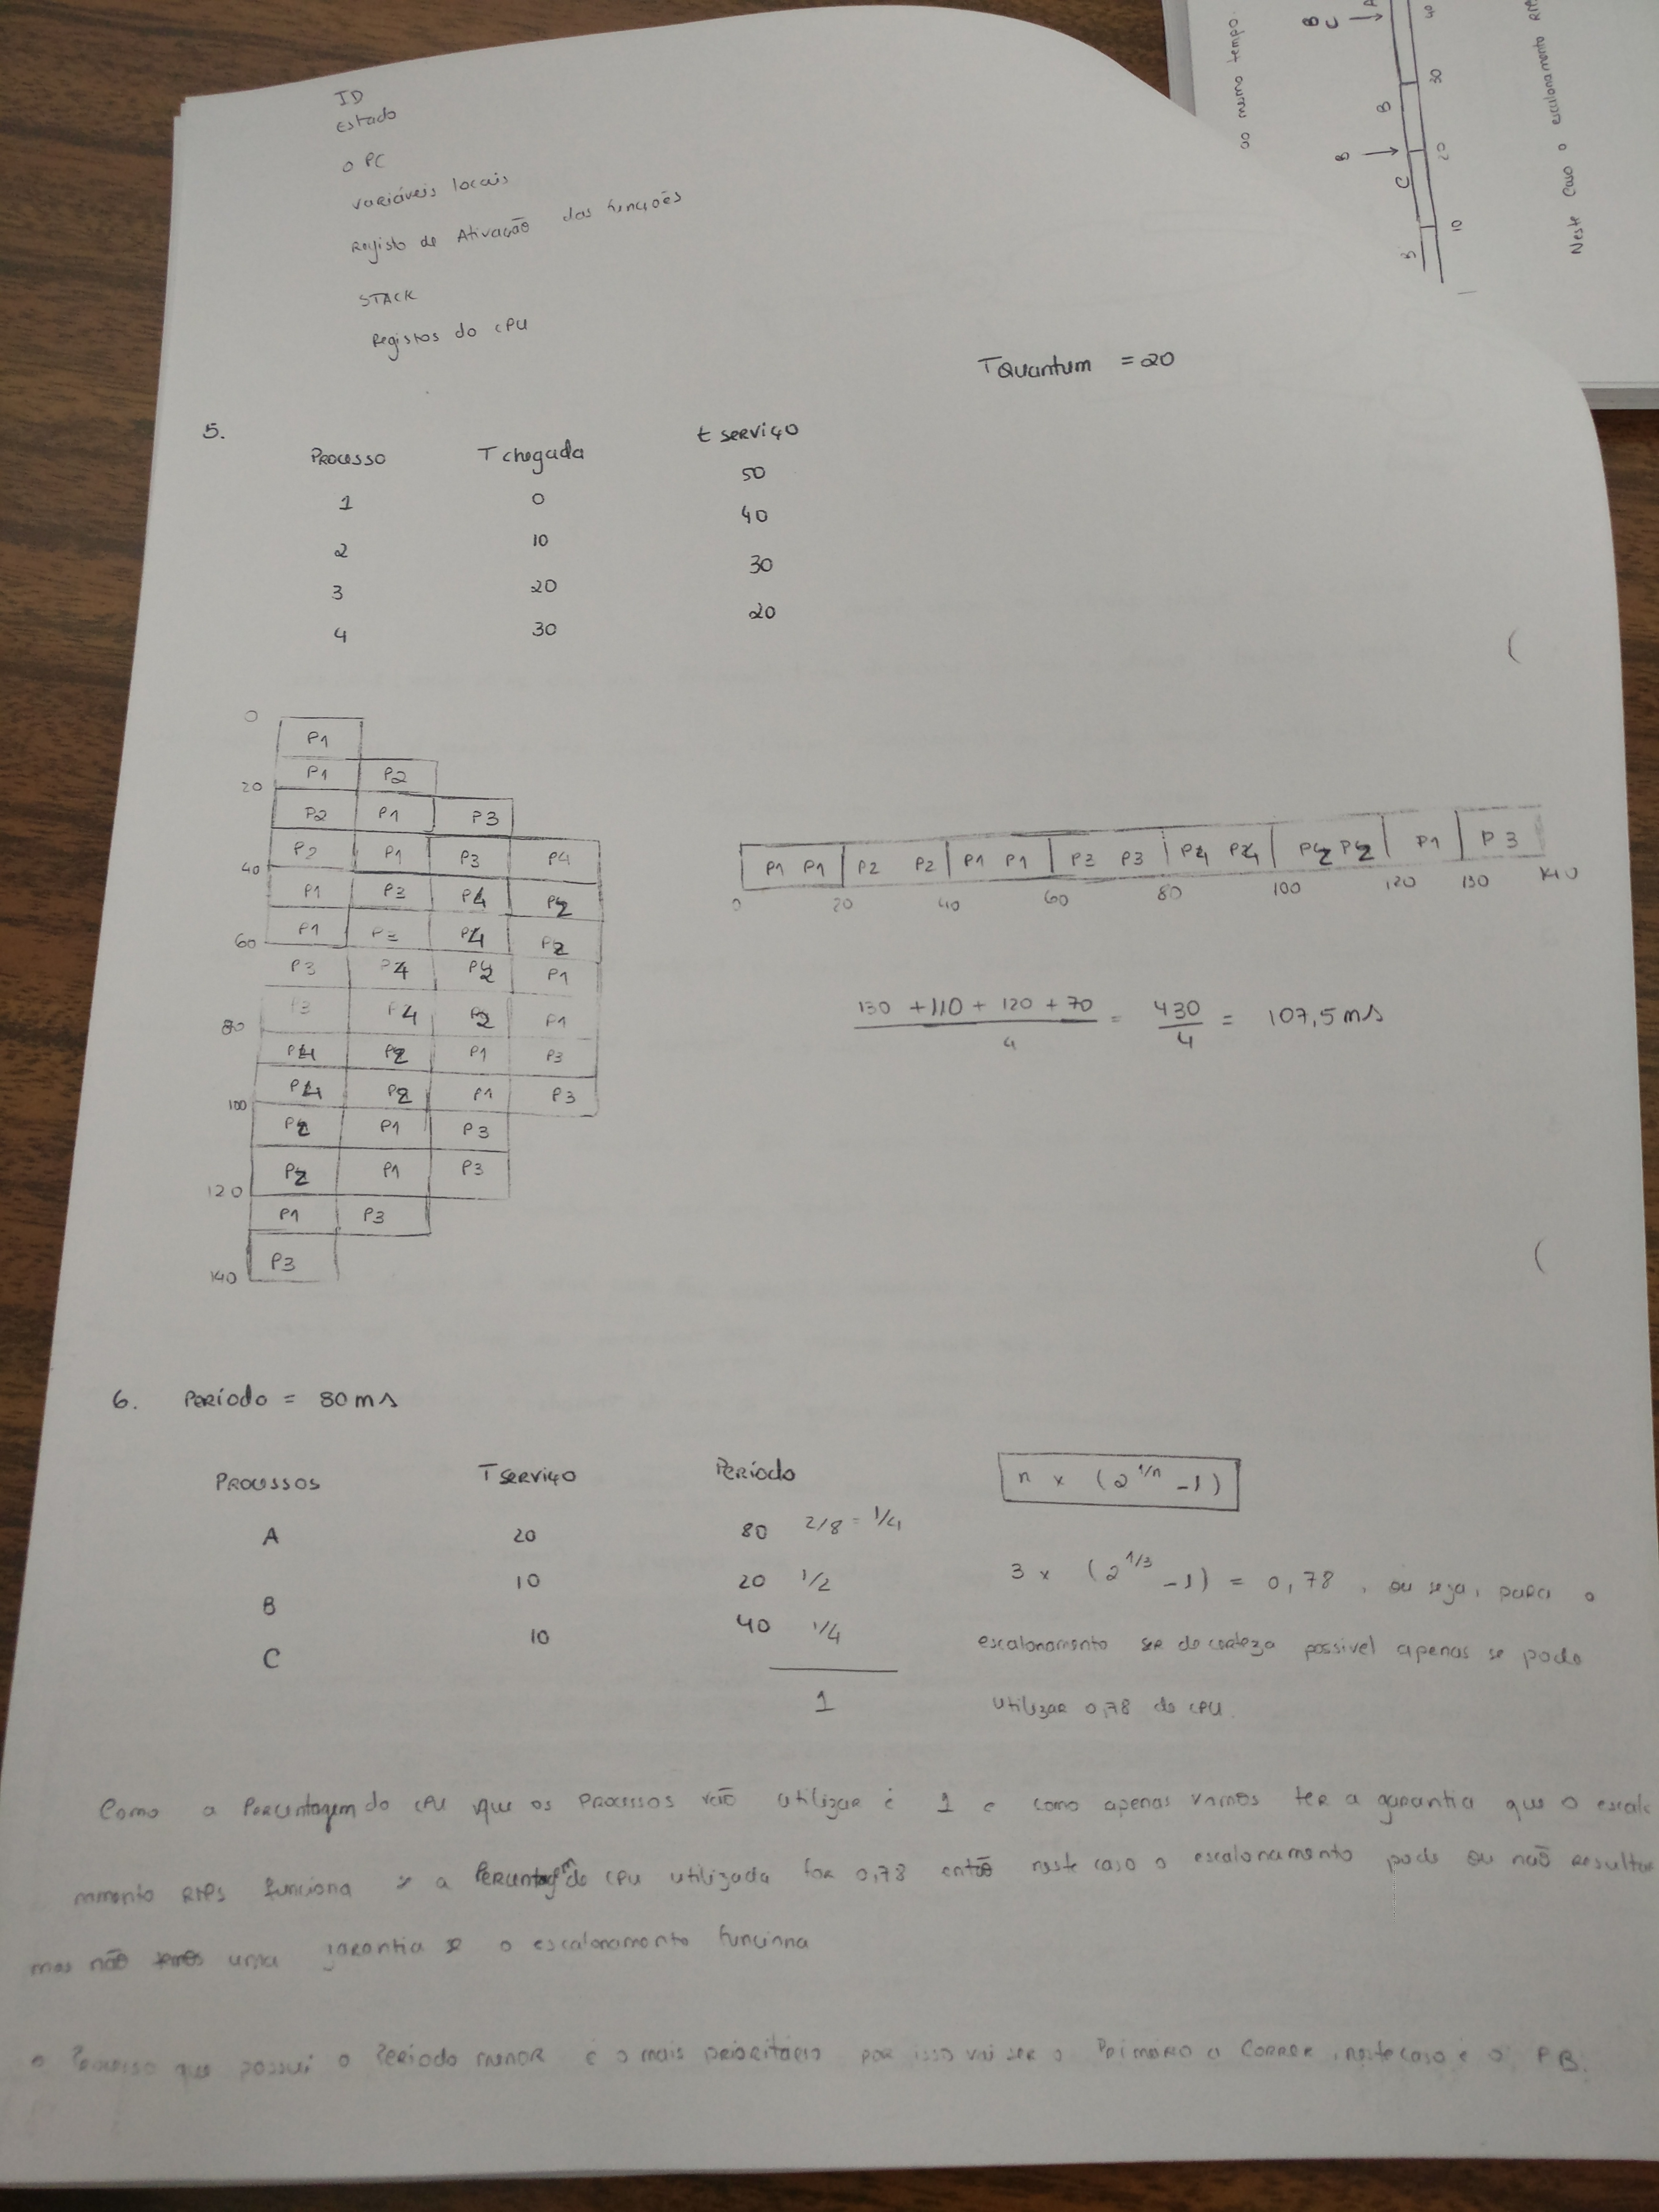 ID
Estado
o PC
variáveis locais
Registo de Ativação das funções
STACK
Registos do CPU
TQuantum = 20
5.
Processo T chegada t serviço
1 0 50
2 10 40
3 20 30
4 30 20
0
P1
P1 P2
20
P2 P1 P3
P2 P1 P3 P4
40
P1 P3 P4 P2
P1 P3 P4 P2
60
P3 P4 P2 P1
P3 P4 P2 P1
80
P4 P2 P1 P3
P4 P2 P1 P3
100
P2 P1 P3
P2 P1 P3
120
P1 P3
P3
140
P1 P1 P2 P2 P1 P1 P3 P3 P4 P4 P2 P2 P1 P3
0 20 40 60 80 100 120 130 140
130 + 110 + 120 + 70 / 4 = 430 / 4 = 107,5 ms
6. Período = 80 ms
Processos T serviço Período
A 20 80 2/8 = 1/4
B 10 20 1/2
C 10 40 1/4
1
n x (2^1/n - 1)
3 x (2^1/3 - 1) = 0,78 , ou seja, para o
escalonamento ser de certeza possivel apenas se pode
utilizar 0,78 do CPU.
Como a Percentagem do CPU que os Processos vão utilizar é 1 e como apenas vamos ter a garantia que o escalo
namento RMPs funciona se a Percentagem de CPU utilizada for 0,78 então neste caso o escalonamento pode ou não resultar
mas não uma garantia se o escalonamento funciona
o Processo que possui o Período menor é o mais prioritário por isso vai ser o Primeiro a Correr, neste caso é o PB.
ao mesmo tempo.
B C A
B B
B C
10 20 30 40
Neste Caso o escalonamento